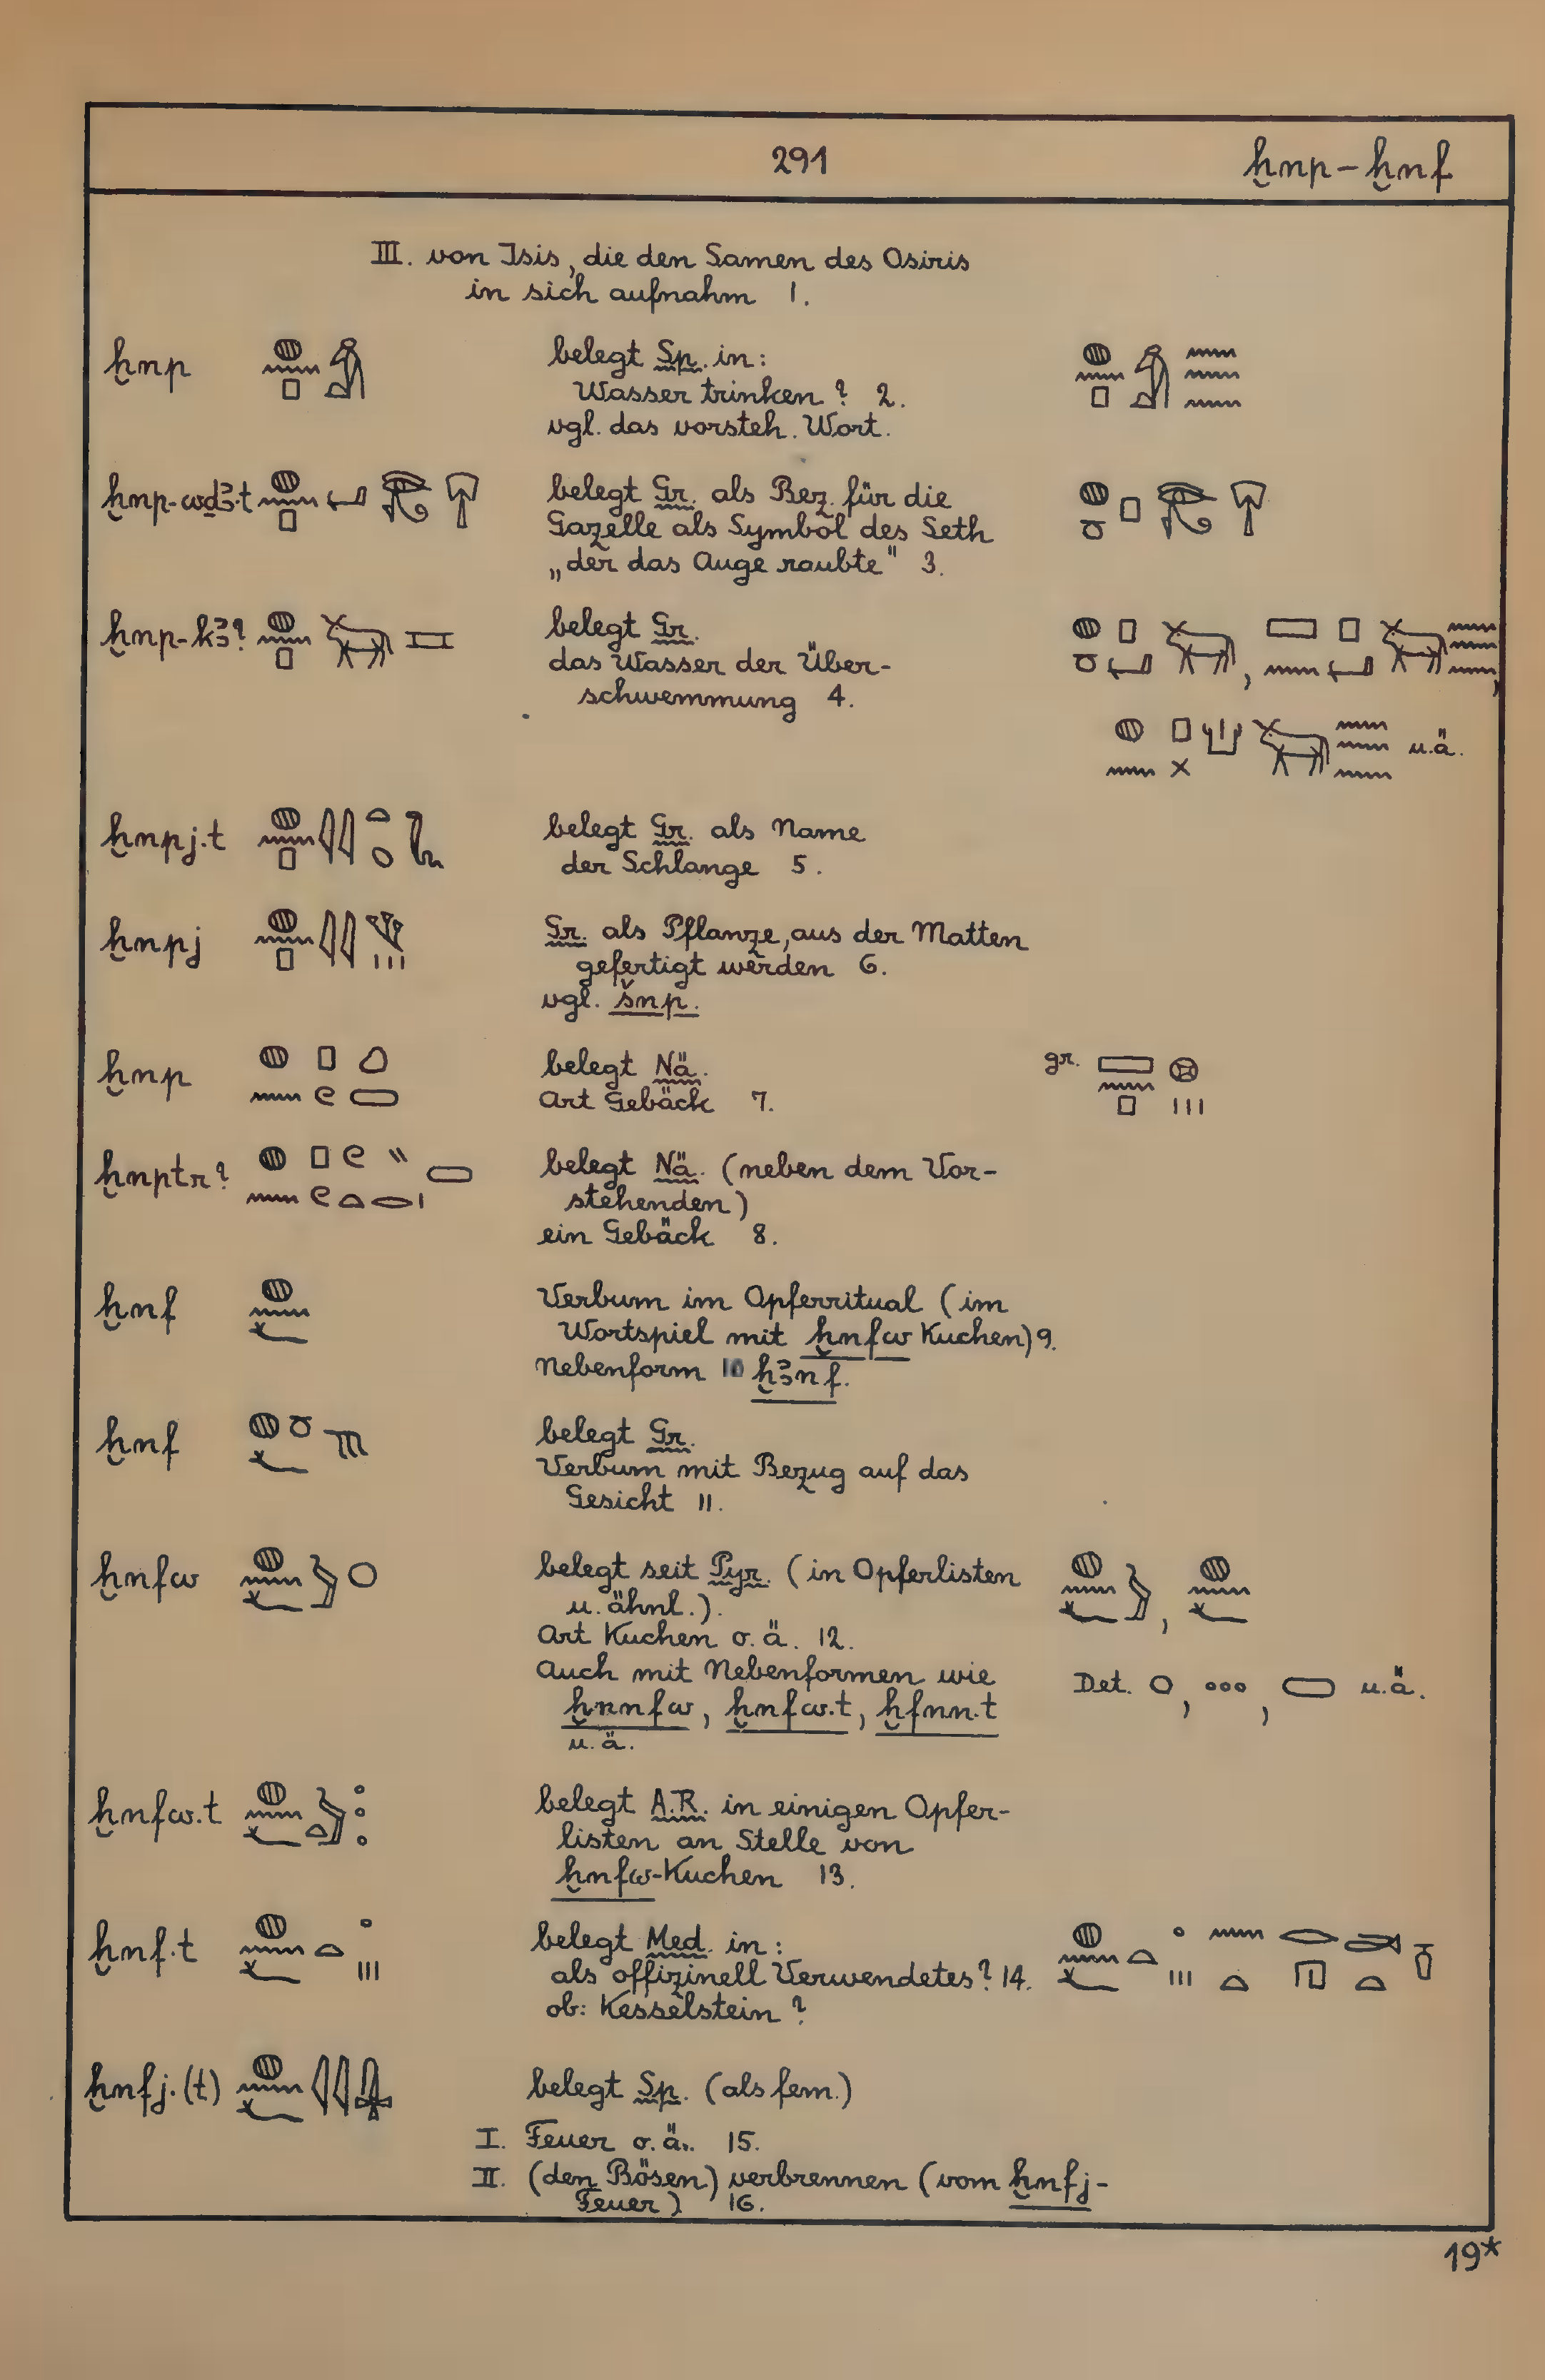 291
ḫnp – ḫnf
III. von Isis, die den Samen des Osiris
in sich aufnahm 1.
ḫnp belegt Sp. in:
Wasser trinken? 2.
vgl. das vorsteh. Wort.
ḫnp-wḏꜣ.t belegt Gr. als Bez. für die
Gazelle als Symbol des Seth
„der das Auge raubte" 3.
ḫnp-kꜣ? belegt Gr.
das Wasser der Über-
schwemmung 4.
u.ä.
ḫnpj.t belegt Gr. als Name
der Schlange 5.
ḫnpj Gr. als Pflanze, aus der Matten
gefertigt werden 6.
vgl. šnp.
ḫnp belegt Nä. gr.
Art Gebäck 7.
ḫnptr? belegt Nä. (neben dem Vor-
stehenden)
ein Gebäck 8.
ḫnf Verbum im Opferritual (im
Wortspiel mit ḫnfw Kuchen) 9.
Nebenform 10 ḫꜣnf.
ḫnf belegt Gr.
Verbum mit Bezug auf das
Gesicht 11.
ḫnfw belegt seit Pyr. (in Opferlisten
u. ähnl.).
Art Kuchen o.ä. 12.
Auch mit Nebenformen wie Det. u.ä.
ḫnnfw, ḫnfw.t, ḫfnn.t
u.ä.
ḫnfw.t belegt A.R. in einigen Opfer-
listen an Stelle von
ḫnfw-Kuchen 13.
ḫnf.t belegt Med. in:
als offizinell Verwendetes? 14.
ob: Kesselstein?
ḫnfj.(t) belegt Sp. (als fem.)
I. Feuer o.ä. 15.
II. (den Bösen) verbrennen (vom ḫnfj-
Feuer) 16.
19*